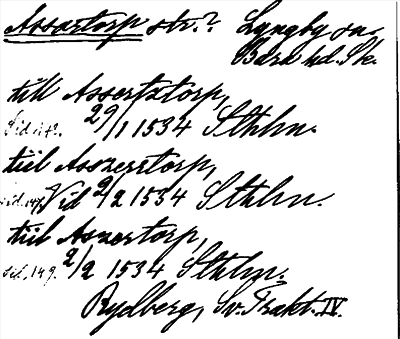 Assartorp str.? Lyngby sn.
Bara hd. Sk.
till Assertztorp,
Sid. 142. 29/1 1534 Sthlm.
till Asszerstorp,
Sid. 147. Vid 2/2 1534 Sthlm.
till Assertorp,
sid. 149. 2/2 1534 Sthlm.
Rydberg, Sv. Trakt. IV.